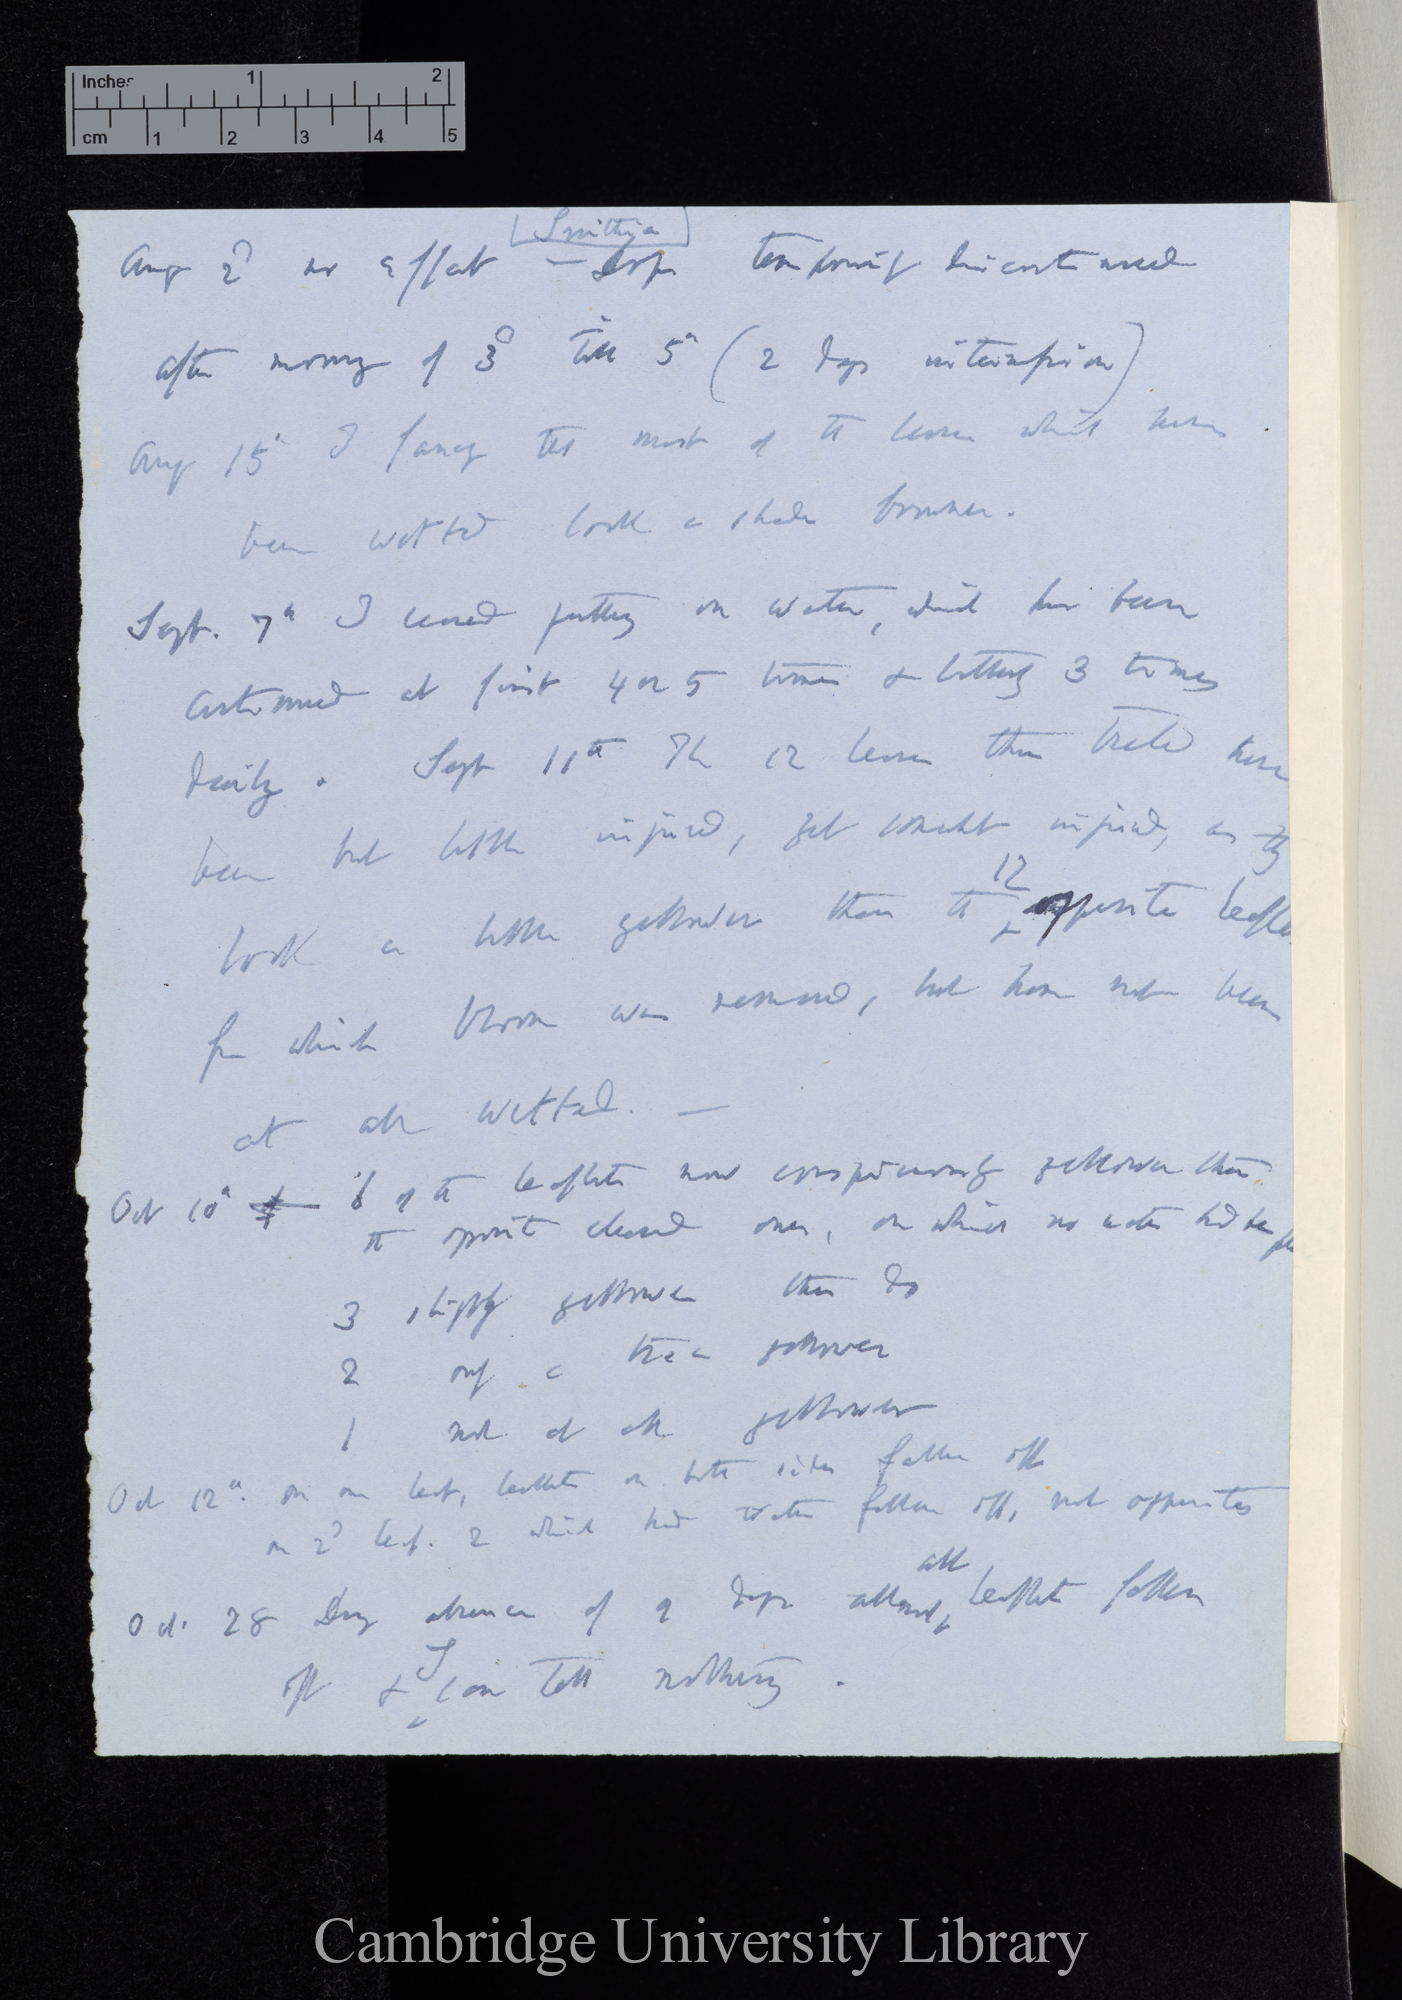 Inches 1 2
cm 1 2 3 4 5
[Smithia]
Aug 2d no effect — drops temporarily discontinued
after morning of 3d till 5th (2 days interruption)
Aug 15th I fancy that most of the leaves which have
been wetted look a shade browner.
Sept. 7th I ceased putting on water, which has been
continued at first 4 or 5 times & latterly 3 times
daily. Sept 11th The 12 leaves thus treated have
been but little injured, yet somewhat injured, as they
look a little yellower than the 12 opposite
from which bloom was removed, but have not been
at all wetted. —
Oct 10th 6 of the leaflets now conspicuously yellower than
the opposite cleaned ones, on which no water had been
3 slightly yellower than do
2 only a trace yellower
1 not at all yellower
Oct 12th. on one leaf, leaflets on both sides fallen off
on 2d leaf. 2 which had water fallen off, not opposites
Oct. 28 During absence of 9 days all leaflets fallen
off & I can tell nothing.
Cambridge University Library